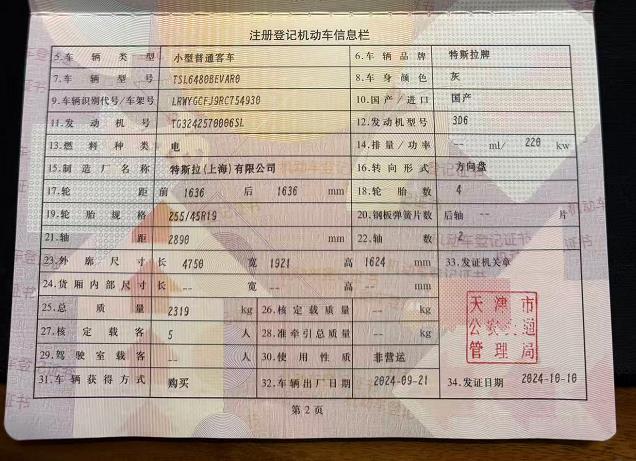 注册登记机动车信息栏
5.车辆类型 小型普通客车 6.车辆品牌 特斯拉牌
7.车辆型号 TSL6480BEVAR0 8.车身颜色 灰
9.车辆识别代号/车架号 LRWYGCFJ9RC754930 10.国产/进口 国产
11.发动机号 TG3242570006SL 12.发动机型号 3D6
13.燃料种类 电 14.排量/功率 -- ml/ 220 kw
15.制造厂名称 特斯拉(上海)有限公司 16.转向形式 方向盘
17.轮距 前 1636 后 1636 mm 18.轮胎数 4
19.轮胎规格 255/45R19 20.钢板弹簧片数 后轴 -- 片
21.轴距 2890 mm 22.轴数 2
23.外廓尺寸 长 4750 宽 1921 高 1624 mm 33.发证机关章
24.货厢内部尺寸 长 -- 宽 -- 高 -- mm
25.总质量 2319 kg 26.核定载质量 -- kg
27.核定载客 5 人 28.准牵引总质量 -- kg
天津市
公安交通
管理局
29.驾驶室载客 -- 人 30.使用性质 非营运
31.车辆获得方式 购买 32.车辆出厂日期 2024-09-21 34.发证日期 2024-10-10
第2页